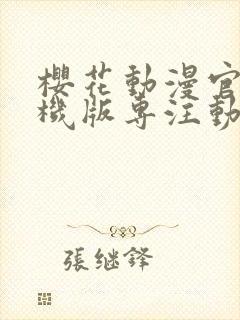 櫻花動漫官
機版專注動
張继鋒